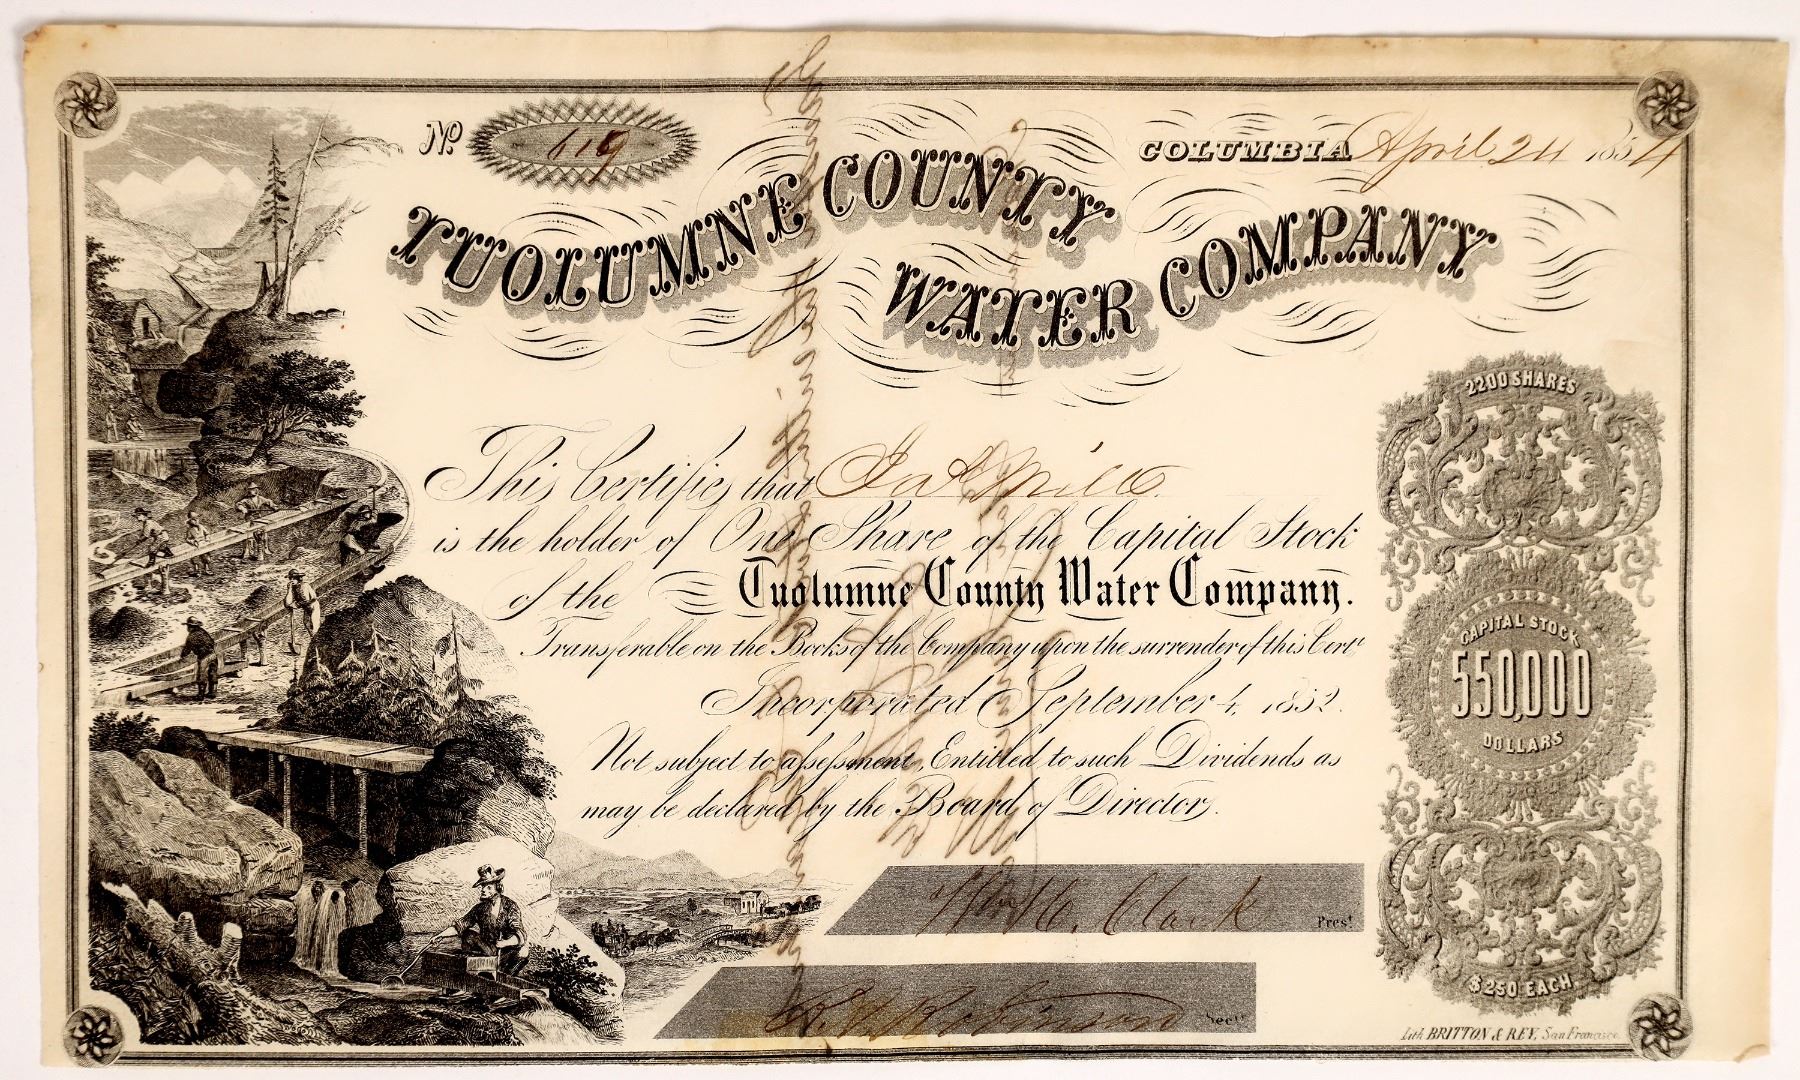 No. 619
COLUMBIA April 24 1854
TUOLUMNE COUNTY
WATER COMPANY
2200 SHARES
This Certifies that
is the holder of One Share of the Capital Stock
of the Tuolumne County Water Company.
Transferable on the Books of the Company upon the surrender of this Cert
Incorporated September 4, 1852.
Not subject to assessment, Entitled to such Dividends as
may be declared by the Board of Directors.
CAPITAL STOCK
550,000
DOLLARS
Wm H. Clark Prest
R. A. Robinson Secty
$250 EACH
Lith. BRITTON & REY, San Francisco.